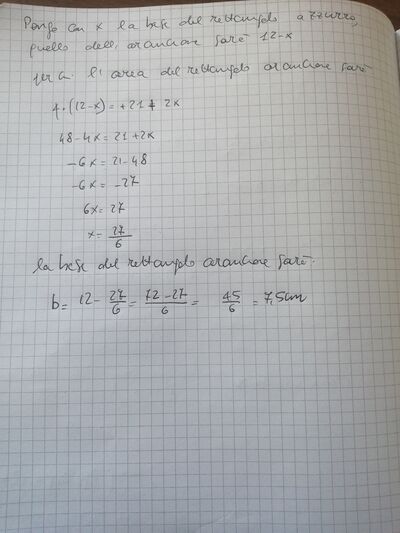 Pongo con x la base del rettangolo azzurro,
quello dell'arancione sarà 12-x
per cui l'area del rettangolo arancione sarà
4·(12-x)=+21+2x
48-4x=21+2x
-6x=21-48
-6x=-27
6x=27
x=27/6
la base del rettangolo arancione sarà.
b= 12-27/6= 72-27/6= 45/6 = 7,5cm